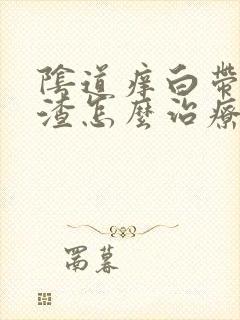 陰道痒白帶
渣怎麼治療
罱暮